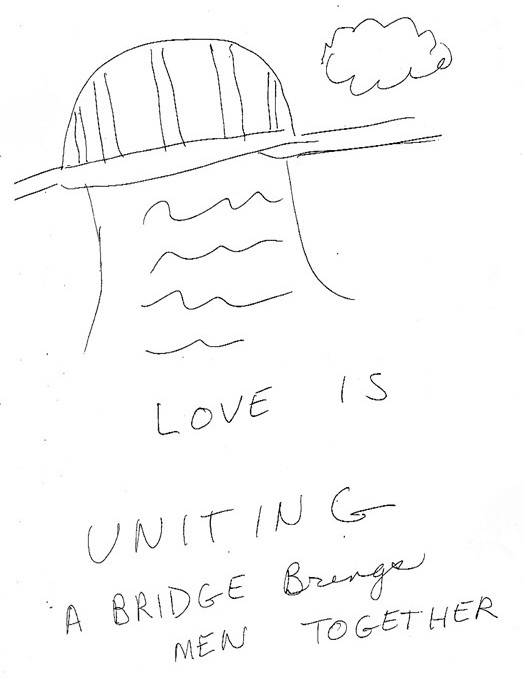 LOVE IS
UNITING
A BRIDGE Brengs
MEN TOGETHER